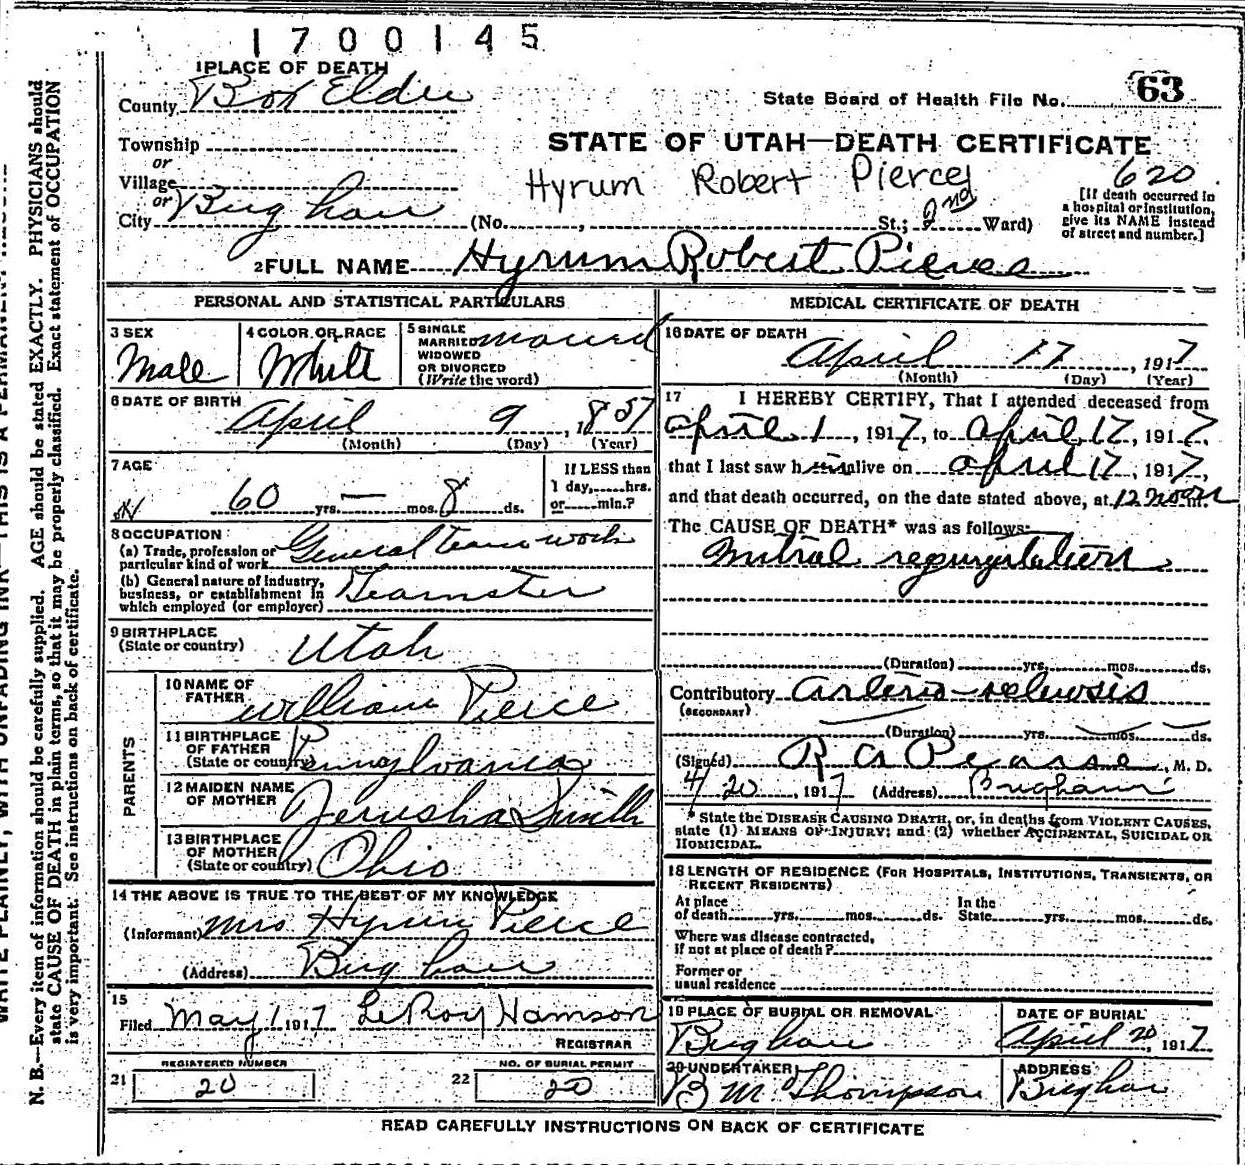 1700145
1 PLACE OF DEATH
County Box Elder
State Board of Health File No. 63
Township
or
Village
or
City Brigham
STATE OF UTAH—DEATH CERTIFICATE
Hyrum Robert Pierce
620
(No. , St.; 2nd Ward)
[If death occurred in a hospital or institution, give its NAME instead of street and number.]
2 FULL NAME Hyrum Robert Pierce
PERSONAL AND STATISTICAL PARTICULARS
3 SEX
Male
4 COLOR OR RACE
White
5 SINGLE
MARRIED
WIDOWED
OR DIVORCED
(Write the word)
married
6 DATE OF BIRTH
April 9, 1857
(Month) (Day) (Year)
7 AGE
60 yrs. — mos. 8 ds.
If LESS than
1 day, hrs.
or min.?
8 OCCUPATION
(a) Trade, profession or
particular kind of work General team work
(b) General nature of Industry,
business, or establishment in
which employed (or employer) Teamster
9 BIRTHPLACE
(State or country) Utah
PARENTS
10 NAME OF
FATHER William Pierce
11 BIRTHPLACE
OF FATHER
(State or country) Pennsylvania
12 MAIDEN NAME
OF MOTHER Jerusha Smith
13 BIRTHPLACE
OF MOTHER
(State or country) Ohio
14 THE ABOVE IS TRUE TO THE BEST OF MY KNOWLEDGE
(Informant) Mrs Hyrum Pierce
(Address) Brigham
15
Filed May 1, 1917 LeRoy Hamson
REGISTRAR
REGISTERED NUMBER
21 20
NO. OF BURIAL PERMIT
22 20
MEDICAL CERTIFICATE OF DEATH
16 DATE OF DEATH
April 17, 1917
(Month) (Day) (Year)
17 I HEREBY CERTIFY, That I attended deceased from
April 1, 1917, to April 17, 1917,
that I last saw him alive on April 17, 1917,
and that death occurred, on the date stated above, at 12 noon m.
The CAUSE OF DEATH* was as follows:
Mitral regurgitation
(Duration) yrs. mos. ds.
Contributory Arterio-sclerosis
(SECONDARY)
(Duration) yrs. mos. ds.
(Signed) R A Pearse, M. D.
4/20, 1917 (Address) Brigham
* State the DISEASE CAUSING DEATH, or, in deaths from VIOLENT CAUSES,
state (1) MEANS OF INJURY; and (2) whether ACCIDENTAL, SUICIDAL OR
HOMICIDAL.
18 LENGTH OF RESIDENCE (FOR HOSPITALS, INSTITUTIONS, TRANSIENTS, OR
RECENT RESIDENTS)
At place
of death yrs. mos. ds.
In the
State yrs. mos. ds.
Where was disease contracted,
if not at place of death?
Former or
usual residence
19 PLACE OF BURIAL OR REMOVAL
Brigham
DATE OF BURIAL
April 20, 1917
20 UNDERTAKER
B M Thompson
ADDRESS
Brigham
READ CAREFULLY INSTRUCTIONS ON BACK OF CERTIFICATE
N. B.—Every item of information should be carefully supplied. AGE should be stated EXACTLY. PHYSICIANS should
state CAUSE OF DEATH in plain terms, so that it may be properly classified. Exact statement of OCCUPATION
is very important. See instructions on back of certificate.